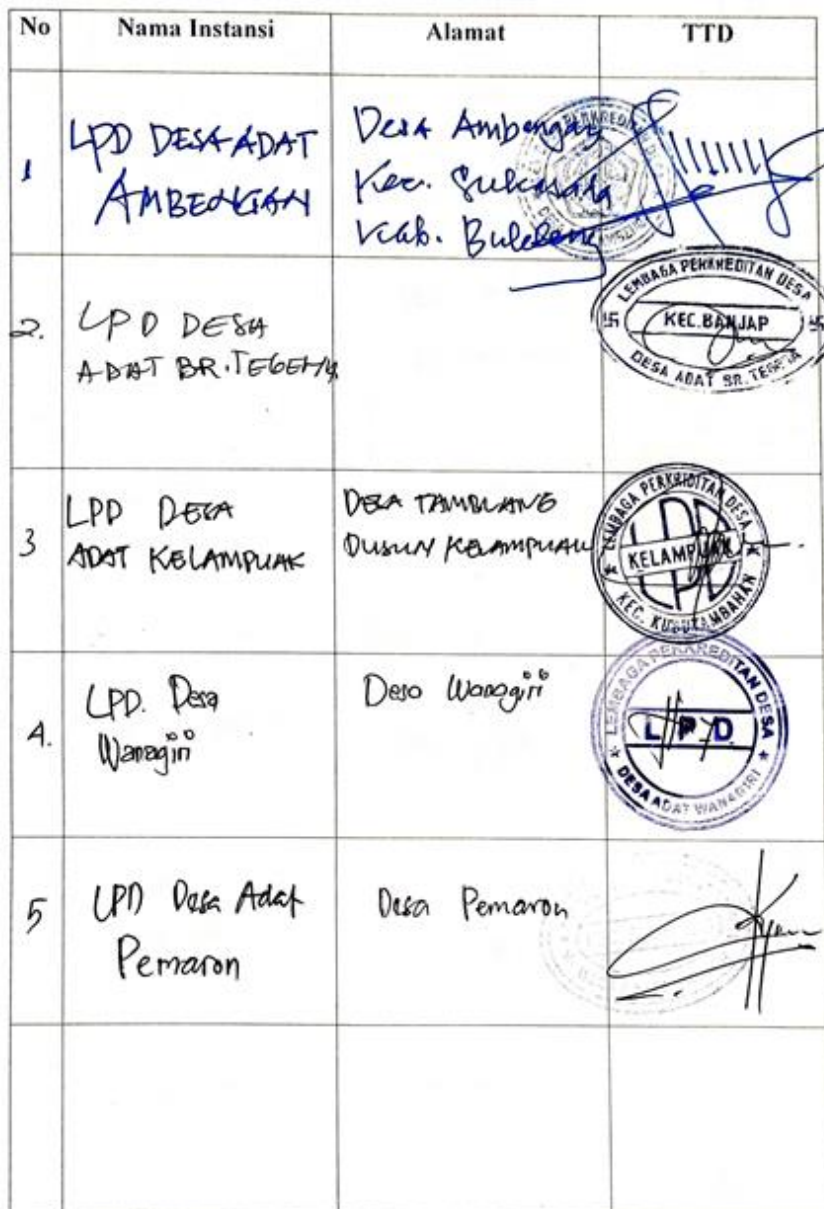 No Nama Instansi Alamat TTD
1 LPD DESA ADAT AMBENGAN
Desa Ambengan
Kec. Sukasada
Kab. Buleleng
2. LPD DESA
ADAT BR. TEGEHA
LEMBAGA PERKREDITAN DESA
KEC. BANJAR
DESA ADAT BR. TEGEHA
3 LPD DESA
ADAT KELAMPUAK
DESA TAMBLANG
DUSUN KELAMPUAK
LEMBAGA PERKRIDITAN DESA
LPD
KELAMPUAK
KEC. KUBUTAMBAHAN
4. LPD. Desa
Wanagiri
Desa Wanagiri
LEMBAGA PERKREDITAN DESA
L P D
DESA ADAT WANAGIRI
5 LPD Desa Adat
Pemaron
Desa Pemaron